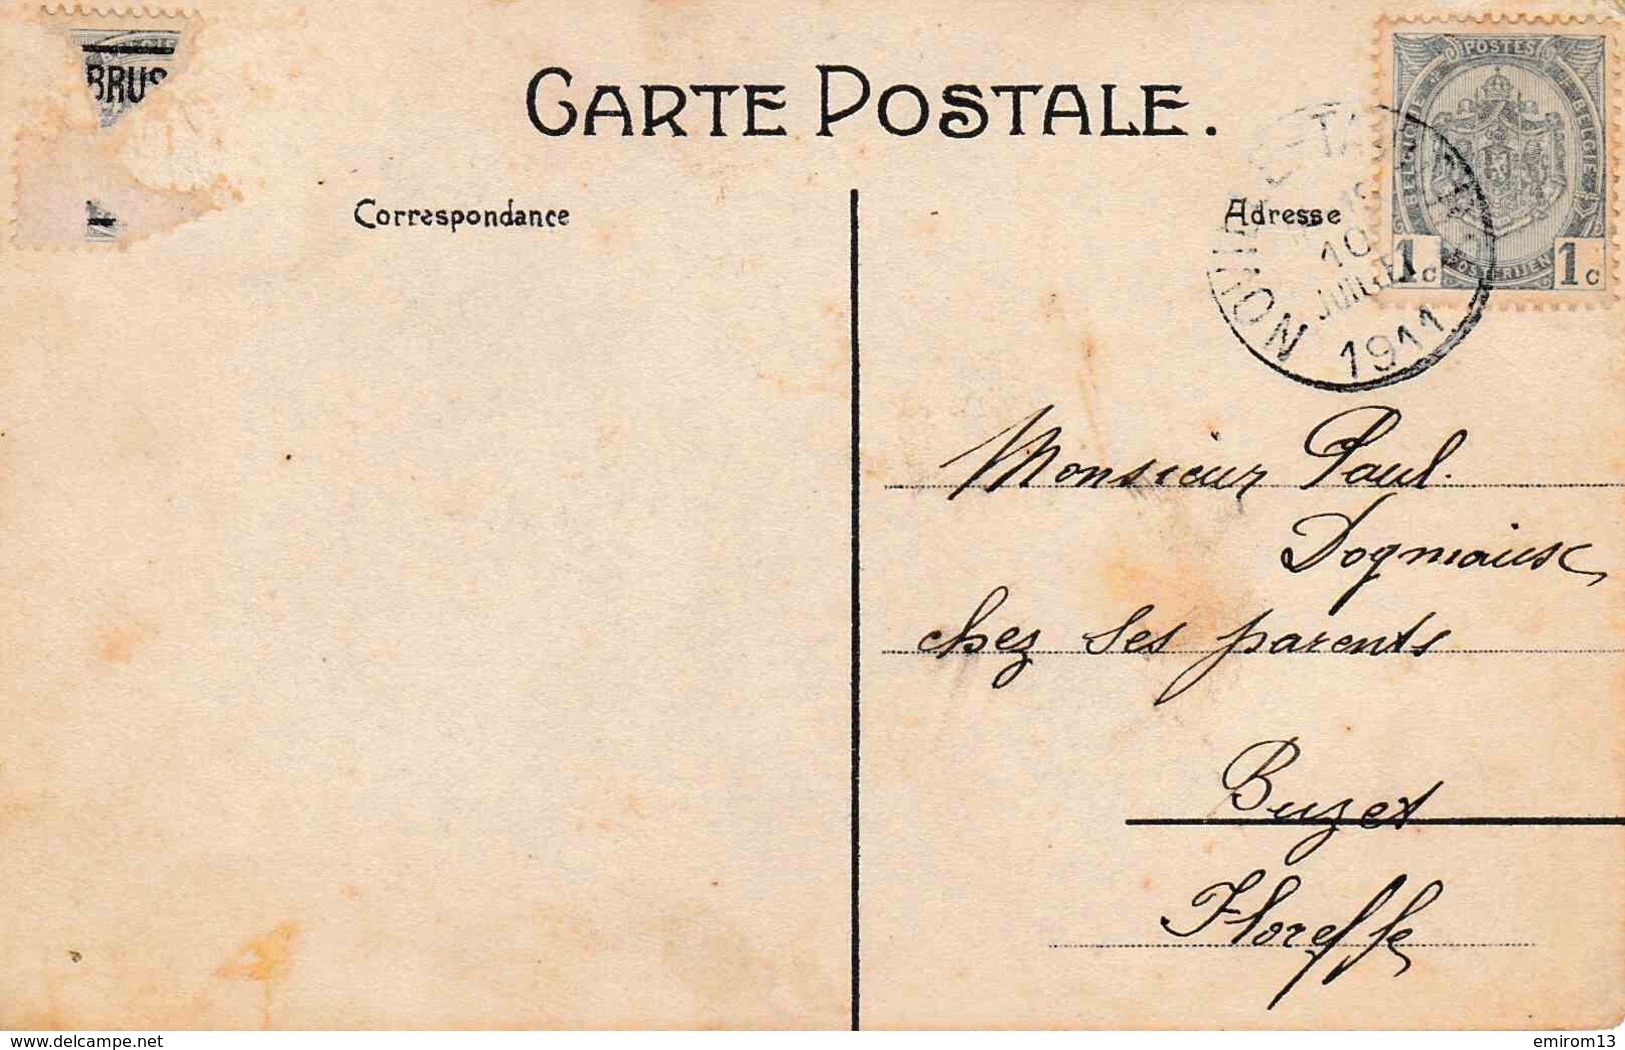 BRUS
CARTE POSTALE.
Correspondance
Adresse
POSTES
BELGIQUE
BELGIE
POSTERIJEN
1c
1c
10
JUILLET
1911
Monsieur Paul.
Dogmaise
chez ses parents
Buzet
Floreffe
delcampe.net
emirom13